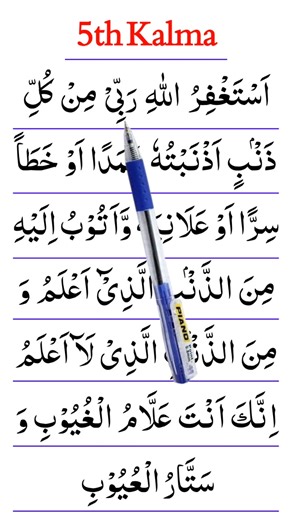 5th Kalma
اَسْتَغْفِرُ اللهِ رَبِّيْ مِنْ كُلِّ
ذَنْۢبٍ اَذْنَبْتُهٗ عَمَدًا اَوْ خَطَأً
سِرًّا اَوْ عَلَانِيَةً وَّاَتُوْبُ اِلَيْهِ
مِنَ الذَّنْۢبِ الَّذِيْٓ اَعْلَمُ وَ
مِنَ الذَّنْۢبِ الَّذِيْ لَآ اَعْلَمُ
اِنَّكَ اَنْتَ عَلَّامُ الْغُيُوْبِ وَ
سَتَّارُ الْعُيُوْبِ
PIANO